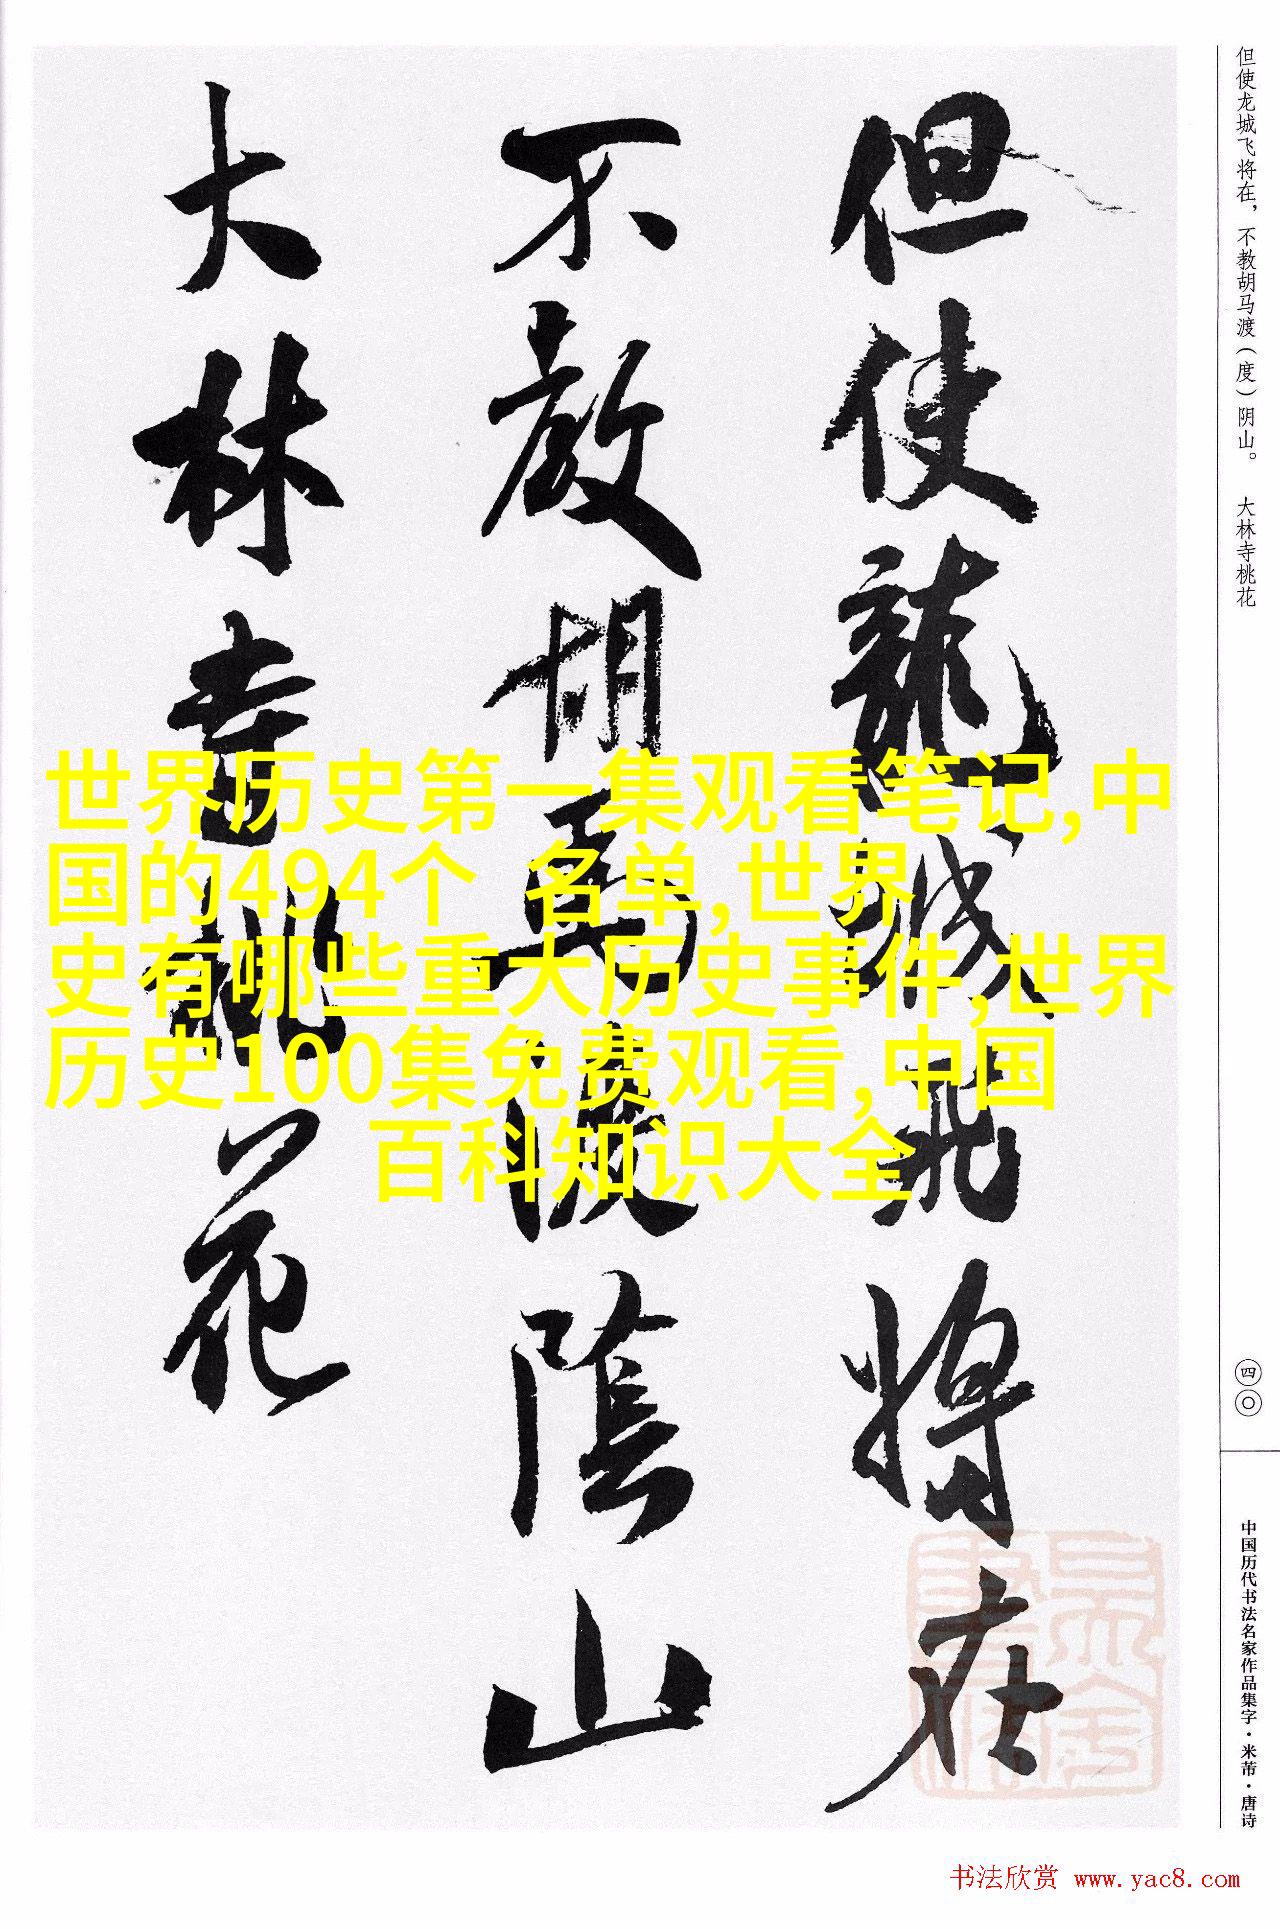 但使龙城飞将在，不教胡马渡（度）阴山。 大林寺桃花
但使龍城飛將在
不教胡馬渡陰山
大林寺桃花
世界历史第一集观看笔记,中
国的494个 名单,世界
史有哪些重大历史事件,世界
历史100集免费观看,中国
百科知识大全
四〇
中国历代书法名家作品集字·米芾·唐诗
书法欣赏 www.yac8.com